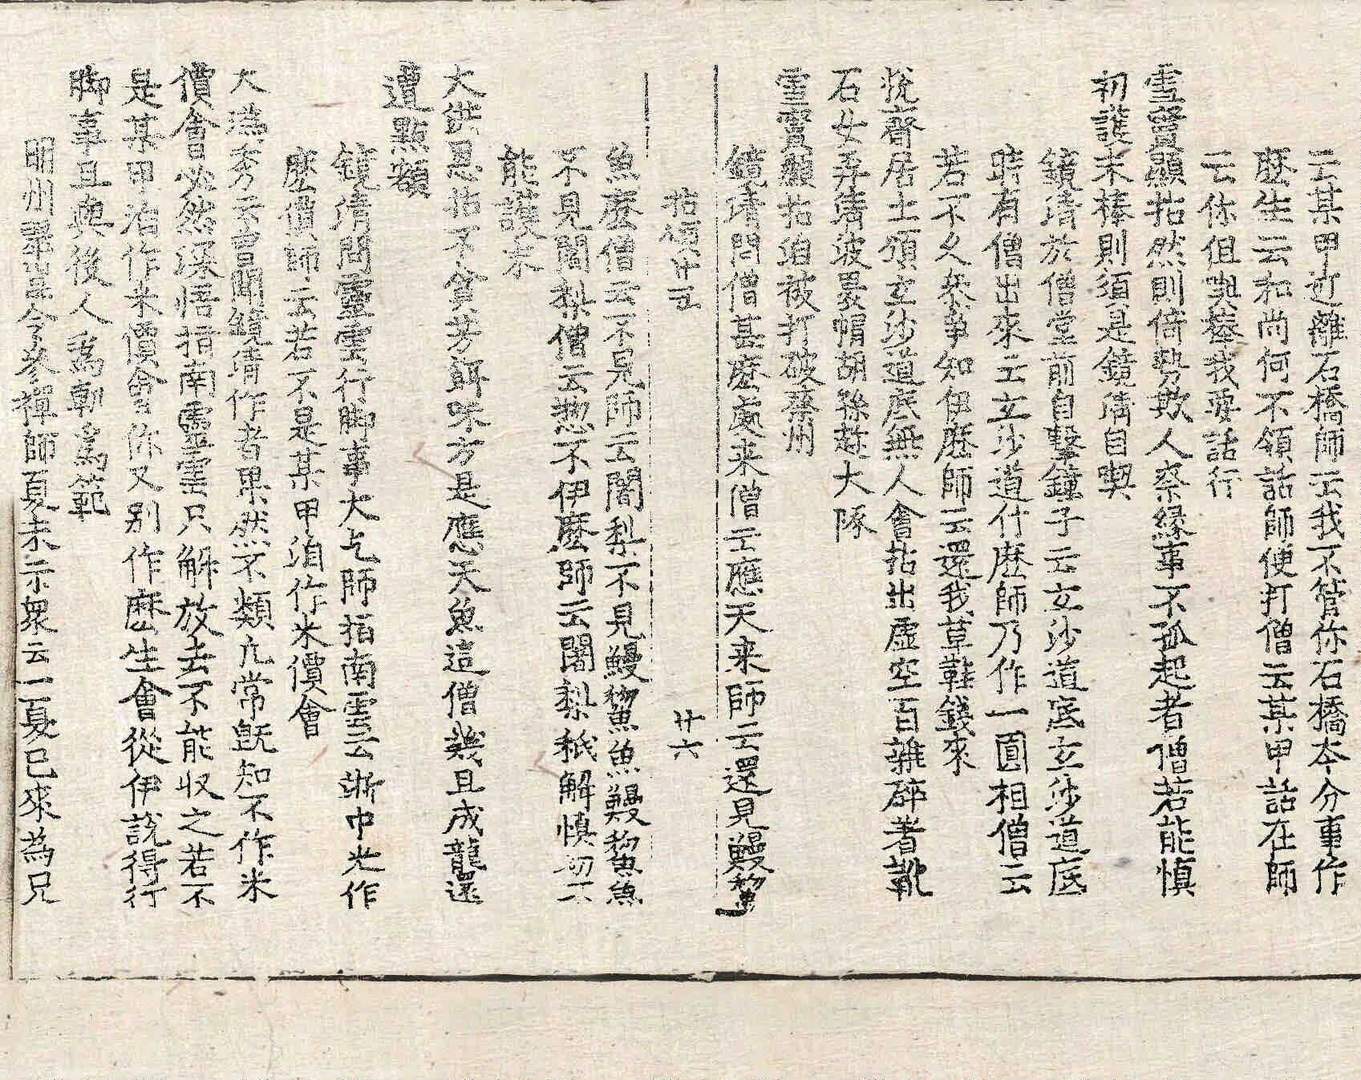 云某甲近離石橋師云我不管你石橋本分事作
麽生云和尚何不領話師便打僧云某甲話在師
云你但喫棒我要話行
雪竇顯拈然則倚勢欺人奈緣事不孤起者僧若能慎
初護末棒則須是鏡淸自喫
鏡淸於僧堂前自擊鐘子云玄沙道底玄沙道底
時有僧出來云玄沙道什麽師乃作一圓相僧云
若不久叅爭知伊麽師云還我草鞋錢來
居士頌玄沙道底無人會拈出虛空百雜碎著靴
石女弄淸波戴帽胡孫趂大隊
雪竇顯拈洎被打破蔡州
鏡淸問僧甚麽處来僧云應天来師云還見鰻
拈頌廿五 廿六
魚麽僧云不見師云闍梨不見鰻𩶱魚魚鰻𩶱魚
不見闍梨僧云惣不伊麽師云闍梨秪解慎初不
能護末
大洪恩拈不貪芳餌味方是應天魚這僧幾且成龍還
遭點額
鏡淸問靈雲行脚事大乞師指南雲云浙中米作
麽價師云若不是某甲洎作米價會
大潙秀云曾聞鏡淸作者果然不類凢常旣知不作米
價會必然深悟指南靈雲只解放去不能収之若不
是某甲洎作米價會你又別作麽生會從伊說得行
脚事且與後人爲朝爲範
明州翠嵒令參禪師夏末示衆云一夏已來為兄